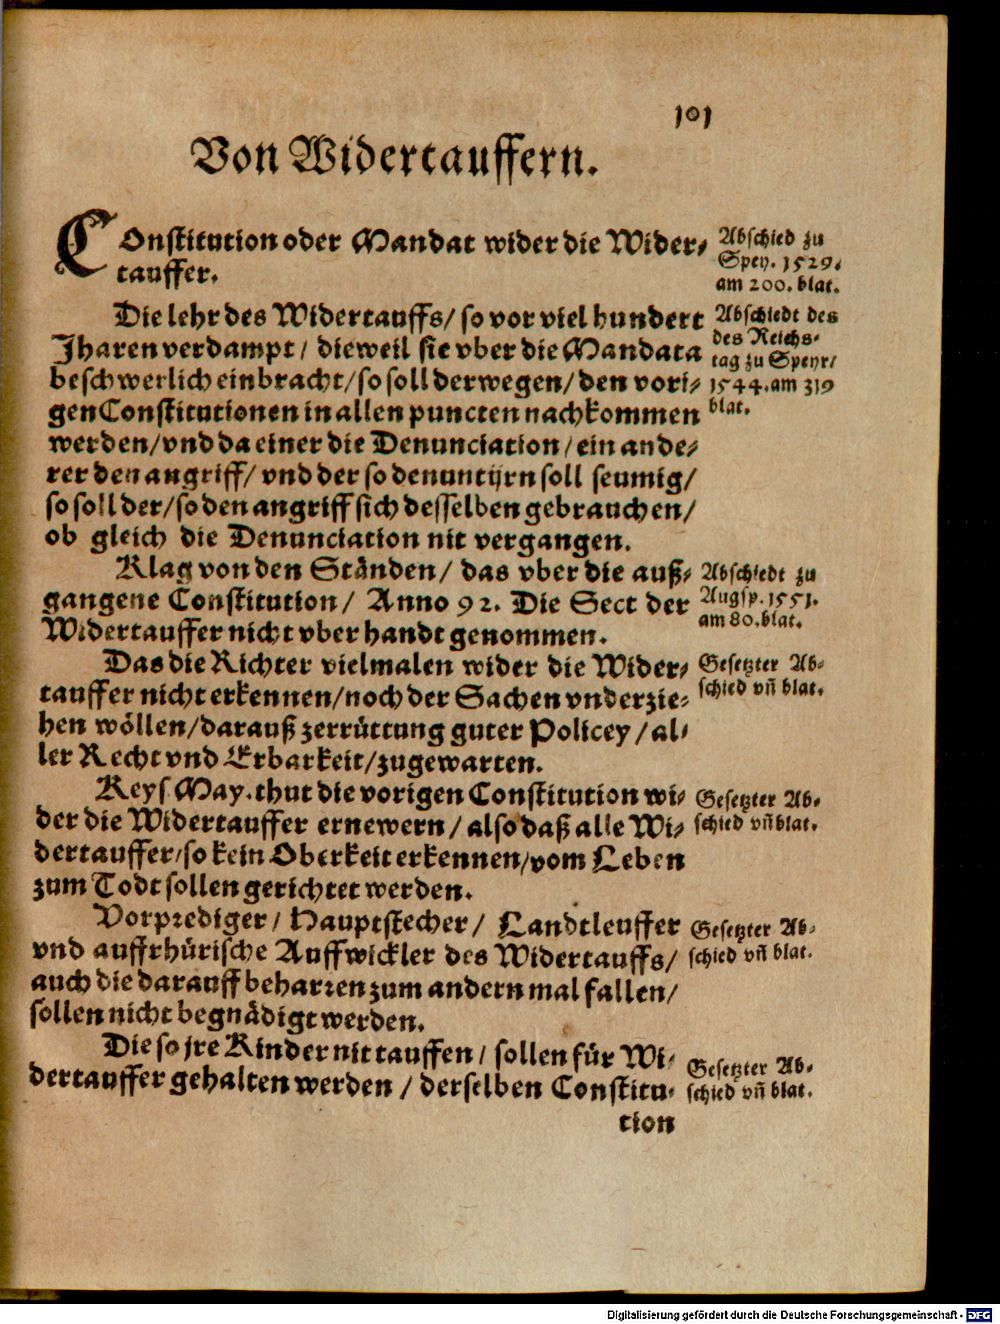 101
Von Widertauffern.
COnstitution oder Mandat wider die Wider-
tauffer.
Abschied zu
Spey. 1529.
am 200. blat.
Die lehr des Widertauffs/ so vor viel hundert
Jharen verdampt/ dieweil sie vber die Mandata
beschwerlich einbracht/ so soll derwegen/ den vori-
gen Constitutionen in allen puncten nachkommen
werden/ vnd da einer die Denunciation/ ein ande-
rer den angriff/ vnd der so denuncijrn soll seumig/
so soll der/ so den angriff sich desselben gebrauchen/
ob gleich die Denunciation nit vergangen.
Abschiedt des
des Reichs-
tag zu Speyr/
1544. am 319
blat.
Klag von den Ständen/ das vber die auß-
gangene Constitution/ Anno 92. Die Sect der
Widertauffer nicht vber handt genommen.
Abschiedt zu
Augsp. 1551.
am 80. blat.
Das die Richter vielmalen wider die Wider-
tauffer nicht erkennen/ noch der Sachen vnderzie-
hen wöllen/ darauß zerrüttung guter Policey/ al-
ler Recht vnd Erbarkeit/ zugewarten.
Gesetzter Ab-
schied vñ blat.
Keys May. thut die vorigen Constitution wi-
der die Widertauffer ernewern/ also daß alle Wi-
dertauffer/ so kein Oberkeit erkennen/ vom Leben
zum Todt sollen gerichtet werden.
Gesetzter Ab-
schied vñ blat.
Vorprediger/ Hauptstecher/ Landtleuffer
vnd auffrhürische Auffwickler des Widertauffs/
auch die darauff beharren zum andern mal fallen/
sollen nicht begnädigt werden.
Gesetzter Ab-
schied vñ blat.
Die so jre Kinder nit tauffen/ sollen für Wi-
dertauffer gehalten werden/ derselben Constitu-
tion
Gesetzter Ab-
schied vñ blat.
Digitalisierung gefördert durch die Deutsche Forschungsgemeinschaft - DFG